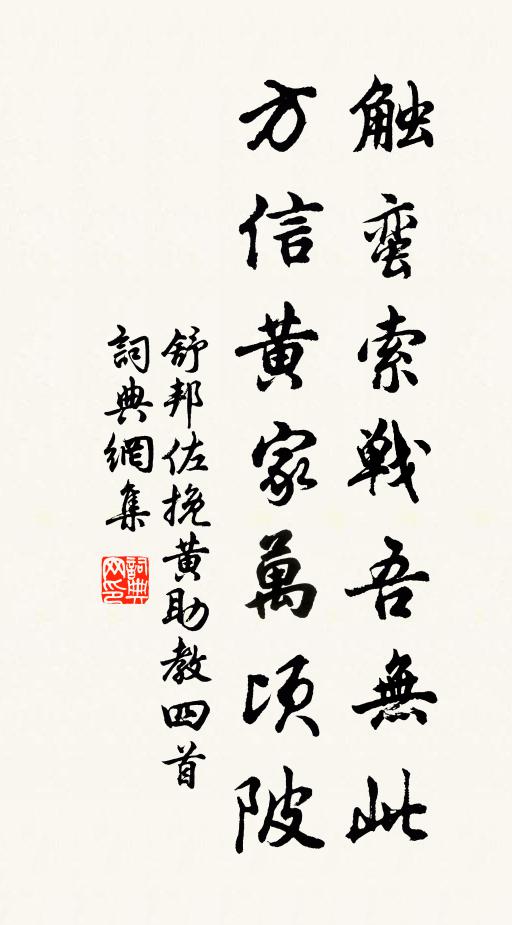 触蛮索戦吾無此
方信黄家萬頃陂
舒邦佐挽黄助教四首
詞典網集
詞典网印